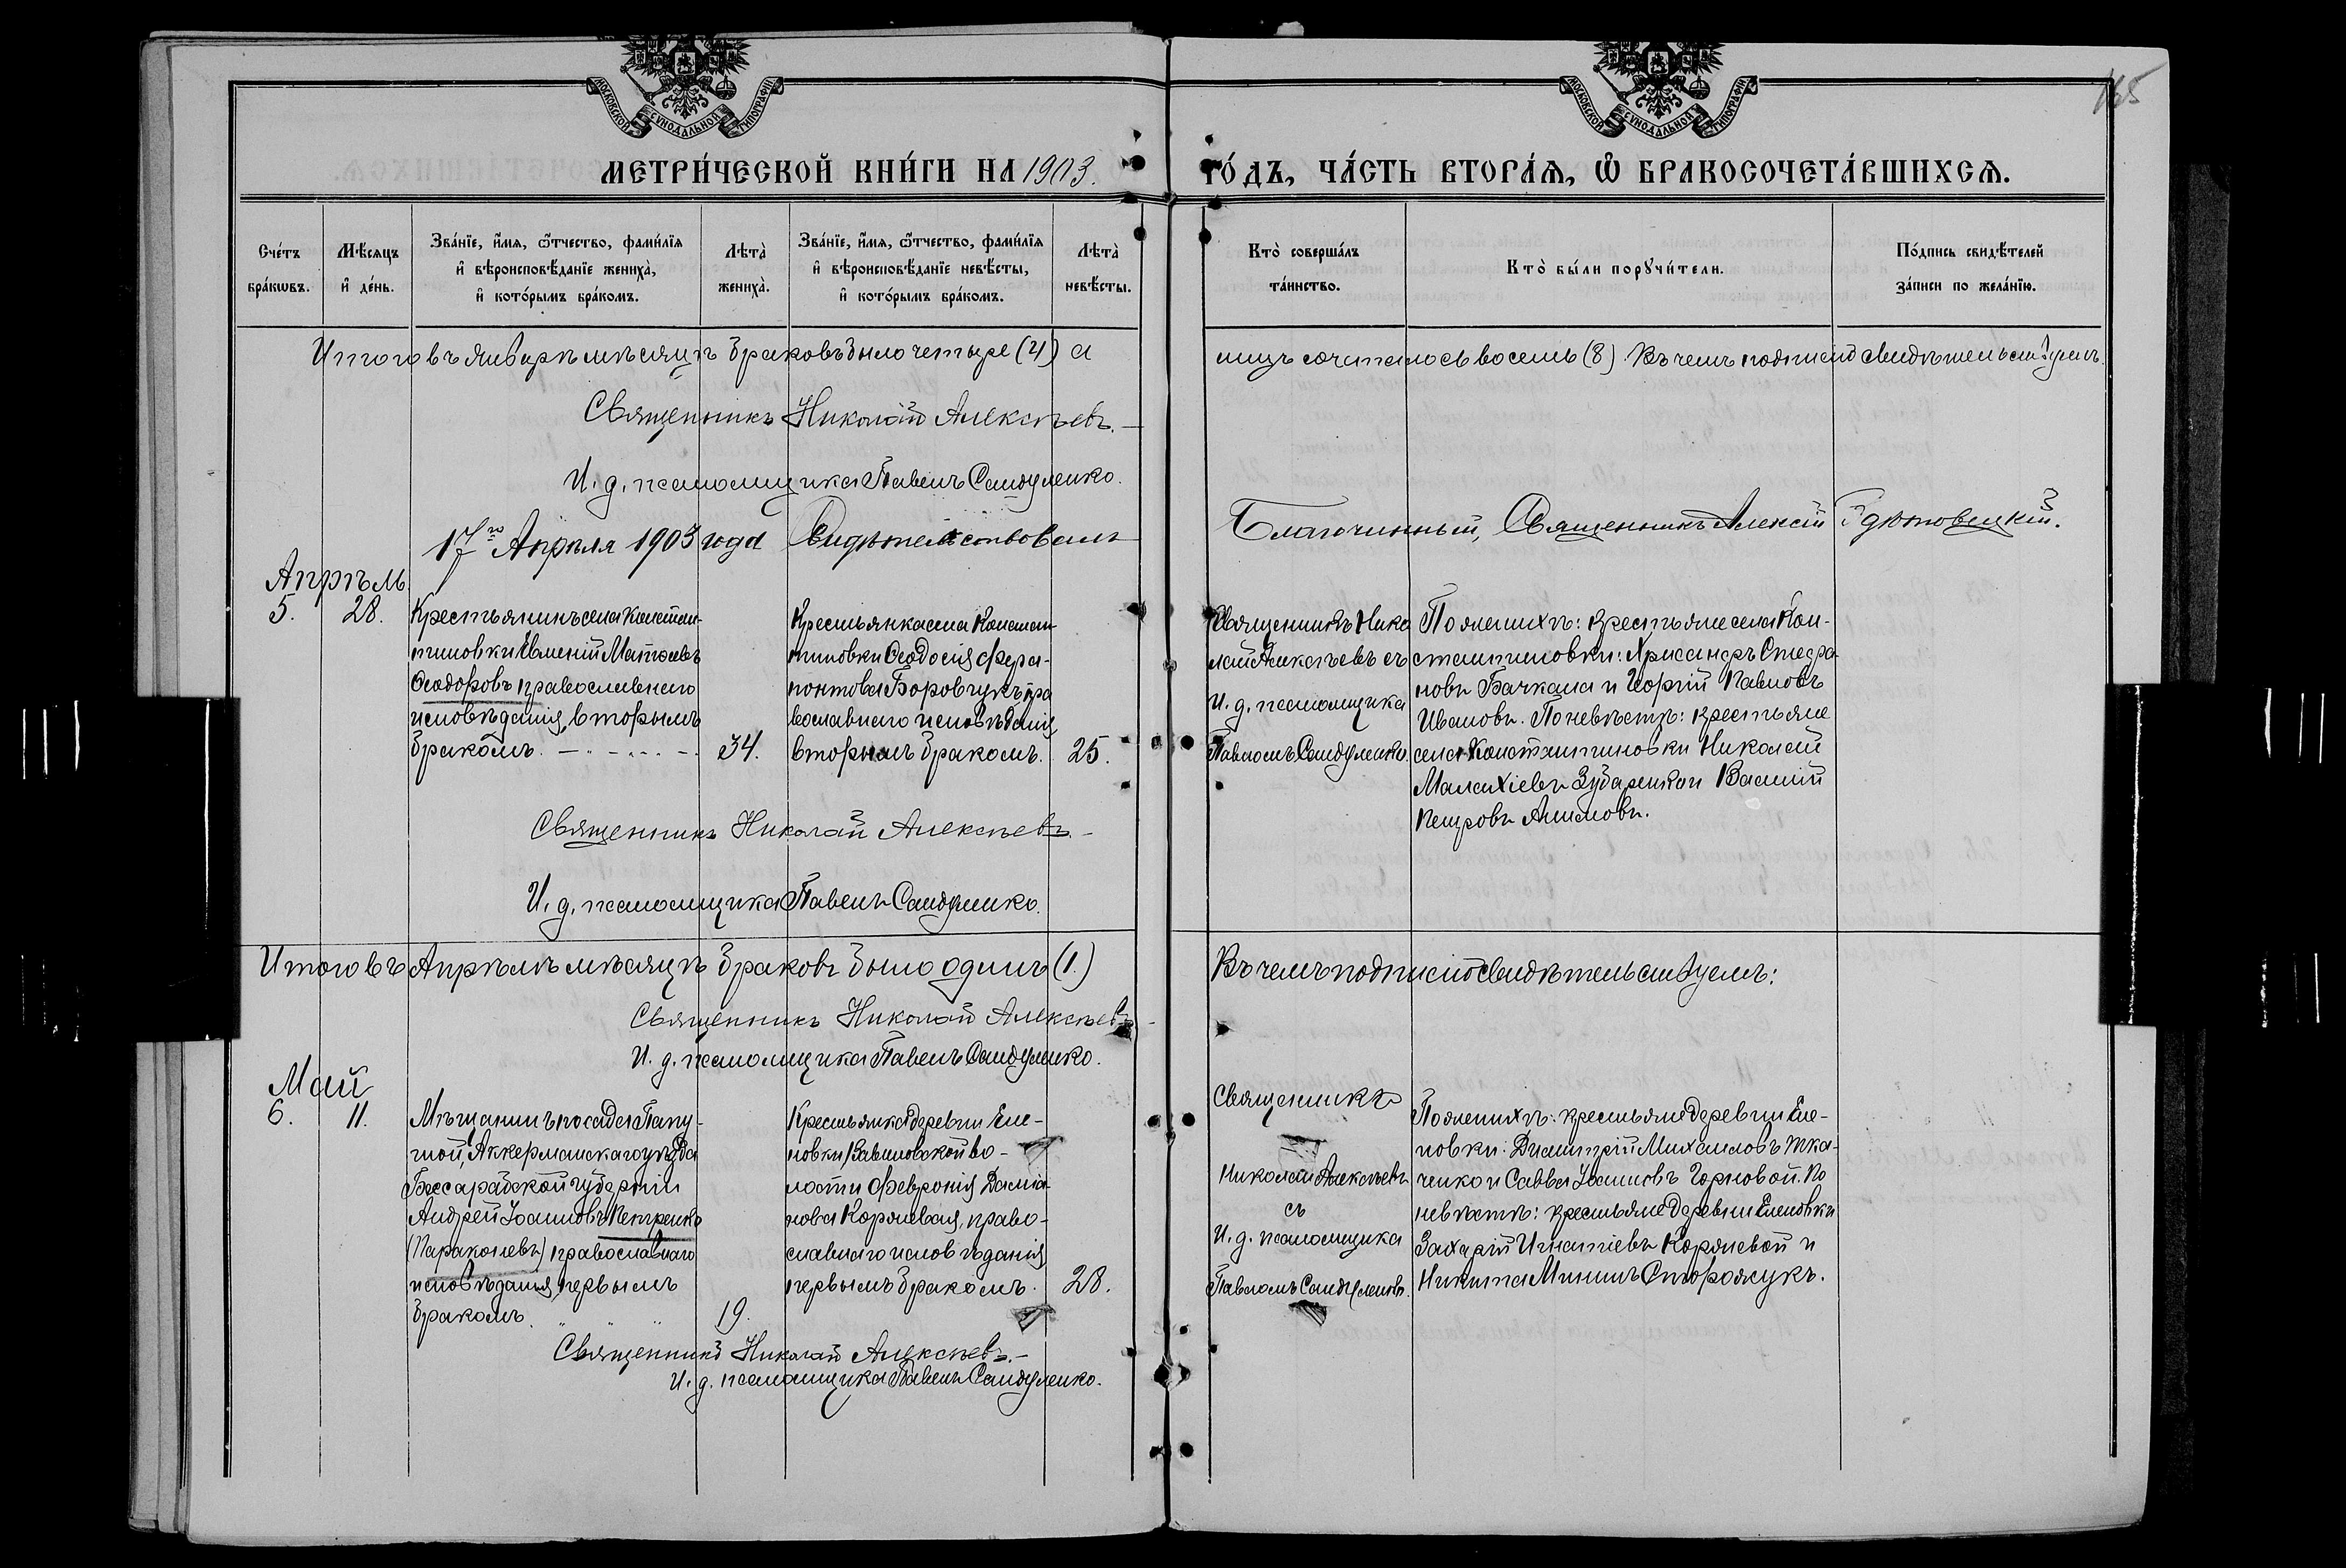 165
МОСКОВСКОЙ СУНОДАЛЬНОЙ ТИПОГРАФІИ
МОСКОВСКОЙ СУНОДАЛЬНОЙ ТИПОГРАФІИ
МЕТРИ́ЧЕСКОЙ КНИ́ГИ НА 1903.
ГО́ДЪ, ЧА́СТЬ ВТОРА́Ѧ, Ѽ БРАКОСОЧЕТА́ВШИХСѦ.
Сче́тъ
бра́кѡвъ.
Мѣ́сяцъ
и҆ де́нь.
Зва́нїе, и҆́мѧ, ѻ҆́тчество, фами́лїѧ
и҆ вѣроисповѣ́данїе жениха̀,
и҆ кото́рымъ бра́комъ.
Лѣта̀
жениха̀.
Зва́нїе, и҆́мѧ, ѻ҆́тчество, фами́лїѧ
и҆ вѣроисповѣ́данїе невѣ́сты,
и҆ кото́рымъ бра́комъ.
Лѣта̀
невѣ́сты.
Кто̀ соверша́лъ
та́инство.
Кто̀ бы́ли порꙋчи́тели.
По́дпись свидѣ́телей
за́писи по жела́нїю.
Итого въ Январѣ мѣсяцѣ браковъ было четыре (4) а
лицъ сочеталось восемь (8). Въ чемъ подписью свидѣтельствуемъ.
Священникъ Николай Алексѣевъ.
И. д. псаломщика Павелъ Сандуленко.
17го Апрѣля 1903 года Свидѣтельствовалъ
Благочинный, Священникъ Алексій
Апрѣль
5.
28.
Крестьянинъ села Констан-
тиновки Евменій Матѳеевъ
Ѳеодоровъ православнаго
исповѣданія, вторымъ
бракомъ.
34.
Крестьянка села Констан-
тиновки Ѳеодосія Фера-
понтова Боровчукъ пра
вославнаго исповѣданія
вторымъ бракомъ.
25.
Священникъ Нико
лай Алексѣевъ съ
И. д. псаломщика
Павломъ Сандуленко.
По женихѣ: крестьяне села Кон-
стантиновки: Хрисанфъ Стефа
новъ Бачкала и Георгій Павловъ
Ивановъ. По невѣстѣ: крестьяне
села Константиновки Николай
Малахіевъ Зубаренко и Василій
Петровъ Алимовъ.
Священникъ Николай Алексѣевъ
И. д. псаломщика Павелъ Сандуленко.
Итого въ Апрѣлѣ мѣсяцѣ браковъ было одинъ (1.)
Въ чемъ подписью свидѣтельствуемъ:
Священникъ Николай Алексѣевъ
И. д. псаломщика Павелъ Сандуленко.
Май
6.
11.
Мѣщанинъ посада Папу-
шой, Аккерманскаго уѣзда
Бессарабской губерніи
Андрей Іоанновъ Петренко
(Параконевъ) православнаго
исповѣданія, первымъ
бракомъ.
19.
Крестьянка деревни Еле-
новки, Савиновской во-
лости Февронія Даміа-
нова Коряневая, право-
славнаго исповѣданія
первымъ бракомъ.
28.
Священникъ
Николай Алексѣевъ
съ
И. д. псаломщика
Павломъ Сандуленко.
По женихѣ: крестьяне деревни Еле-
новки: Димитрій Михаиловъ Тка-
ченко и Савва Іоанновъ Чорновой. По
невѣстѣ: крестьяне деревни Еленовки
Захарій Игнатіевъ Коряневой и
Никита Мининъ Сторожукъ.
Священникъ Николай Алексѣевъ.
И. д. псаломщика Павелъ Сандуленко.